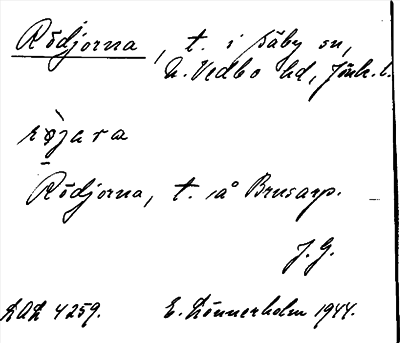 Rödjorna, t. i Säby sn,
N. Vedbo hd, Jönk. l.
röjara
Rödjorna, t. å Brusarp.
J. G.
LAL 4259. E. Lönnerholm 1944.